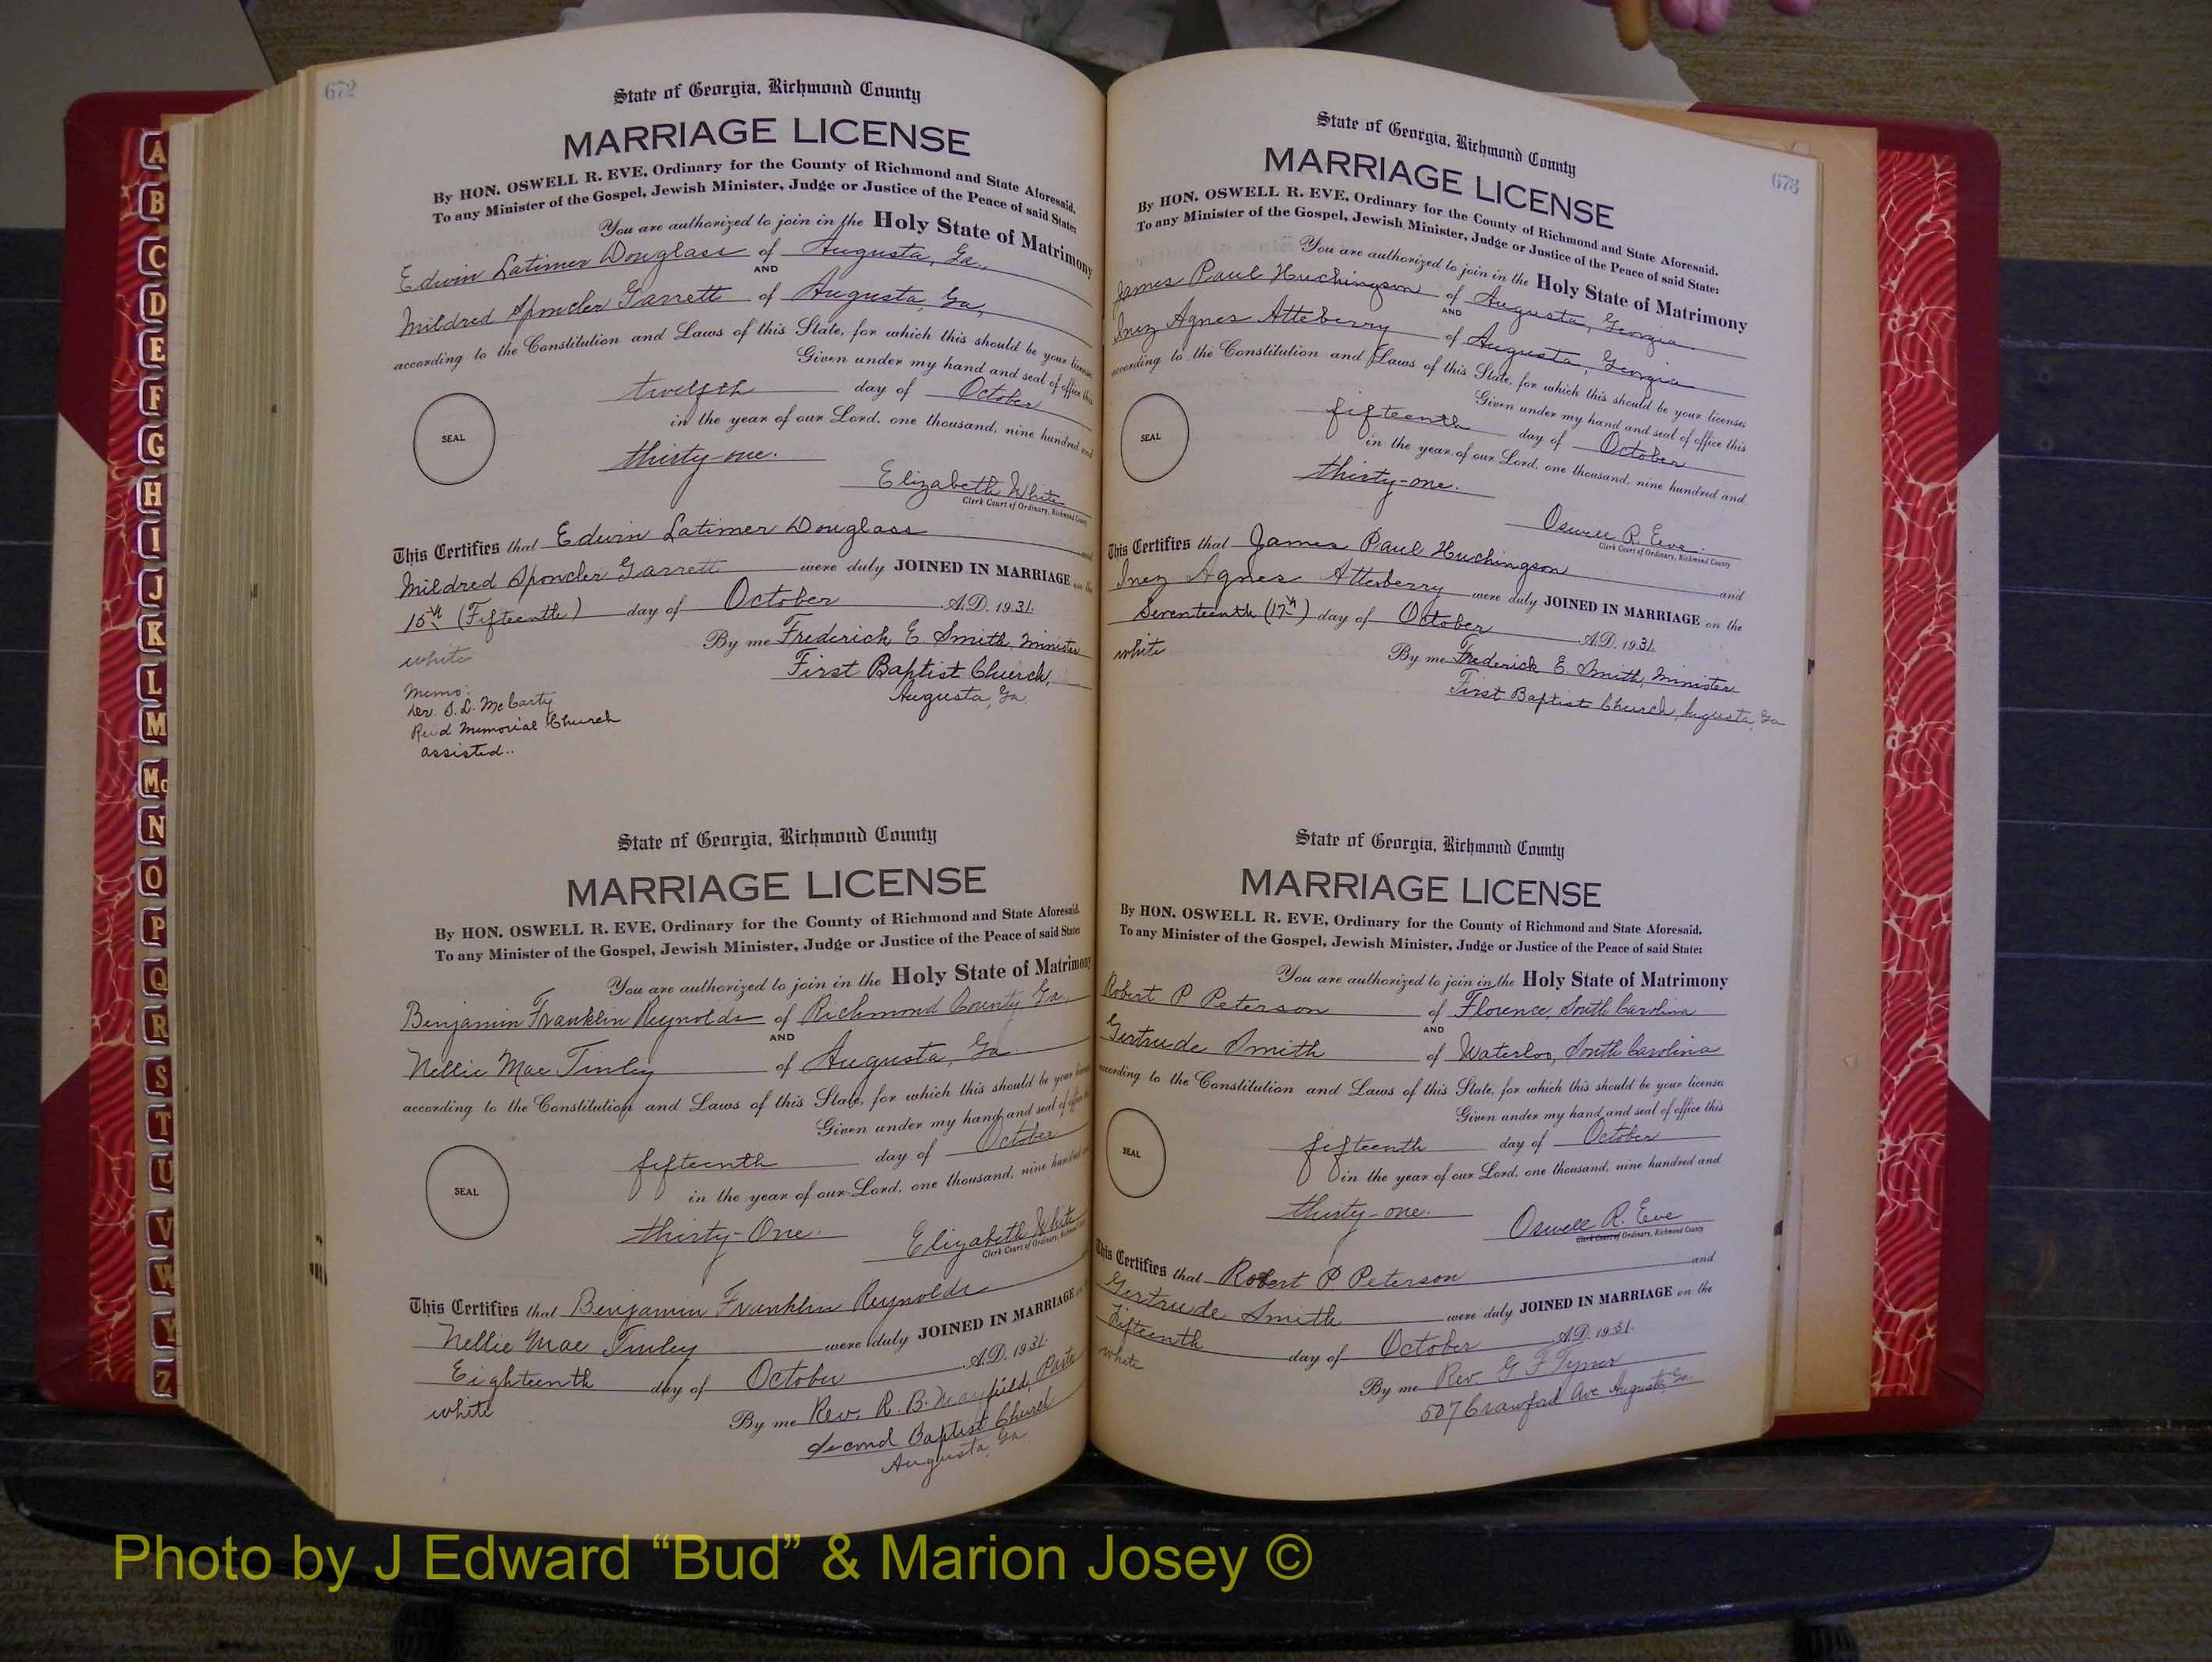 A
B
C
D
E
F
G
H
I
J
K
L
M
Mc
N
O
P
Q
R
S
T
U
V
W
Y
Z
672
State of Georgia, Richmond County
MARRIAGE LICENSE
By HON. OSWELL R. EVE, Ordinary for the County of Richmond and State Aforesaid.
To any Minister of the Gospel, Jewish Minister, Judge or Justice of the Peace of said State:
You are authorized to join in the Holy State of Matrimony
Edwin Latimer Douglass of Augusta, Ga.,
AND
Mildred Sponcler Garrett of Augusta, Ga,
according to the Constitution and Laws of this State, for which this should be your license
Given under my hand and seal of office this
SEAL
twelfth day of October
in the year of our Lord, one thousand, nine hundred and
thirty-one.
Elizabeth White
Clerk Court of Ordinary, Richmond County
This Certifies that Edwin Latimer Douglass and
Mildred Sponcler Garrett were duly JOINED IN MARRIAGE on the
15th (Fifteenth) day of October A.D. 1931.
By me Frederick E Smith, Minister
white
First Baptist Church,
Augusta, Ga
Memo:
S. L. McCarty
Reid Memorial Church
assisted..
State of Georgia, Richmond County
MARRIAGE LICENSE
By HON. OSWELL R. EVE, Ordinary for the County of Richmond and State Aforesaid.
To any Minister of the Gospel, Jewish Minister, Judge or Justice of the Peace of said State:
You are authorized to join in the Holy State of Matrimony
Benjamin Franklin Reynolds of Richmond County, Ga,
AND
Nellie Mae Tinley of Augusta, Ga
according to the Constitution and Laws of this State, for which this should be your license
Given under my hand and seal of office this
SEAL
fifteenth day of October
in the year of our Lord, one thousand, nine hundred and
thirty-One.
Elizabeth White
Clerk Court of Ordinary, Richmond
This Certifies that Benjamin Franklin Reynolds
Nellie Mae Tinley were duly JOINED IN MARRIAGE on
Eighteenth day of October A.D. 1931.
white
By me Rev. R. B. Mayfield, Pastor
Second Baptist Church
Augusta, Ga
673
State of Georgia, Richmond County
MARRIAGE LICENSE
By HON. OSWELL R. EVE, Ordinary for the County of Richmond and State Aforesaid.
To any Minister of the Gospel, Jewish Minister, Judge or Justice of the Peace of said State:
You are authorized to join in the Holy State of Matrimony
James Paul Huchingson of Augusta, Georgia
AND
Inez Agnes Atteberry of Augusta, Georgia
according to the Constitution and Laws of this State, for which this should be your licenses
Given under my hand and seal of office this
SEAL
fifteenth day of October
in the year of our Lord, one thousand, nine hundred and
thirty-one.
Oswell R. Eve.
Clerk Court of Ordinary, Richmond County
This Certifies that James Paul Huchingson and
Inez Agnes Atteberry were duly JOINED IN MARRIAGE on the
Seventeenth (17th) day of October A.D. 1931.
white
By me Frederick E. Smith, Minister
First Baptist Church, Augusta, Ga
State of Georgia, Richmond County
MARRIAGE LICENSE
By HON. OSWELL R. EVE, Ordinary for the County of Richmond and State Aforesaid.
To any Minister of the Gospel, Jewish Minister, Judge or Justice of the Peace of said State:
You are authorized to join in the Holy State of Matrimony
Robert P Peterson of Florence, South Carolina
AND
Gertrude Smith of Waterloo, South Carolina
according to the Constitution and Laws of this State, for which this should be your licenses
Given under my hand and seal of office this
SEAL
fifteenth day of October
in the year of our Lord, one thousand, nine hundred and
thirty-one.
Oswell R. Eve
Clerk Court of Ordinary, Richmond County
This Certifies that Robert P. Peterson and
Gertrude Smith were duly JOINED IN MARRIAGE on the
Fifteenth day of October A.D. 1931.
white
By me Rev. G F Tyner
507 Crawford Ave Augusta, Ga.
Photo by J Edward “Bud” & Marion Josey ©